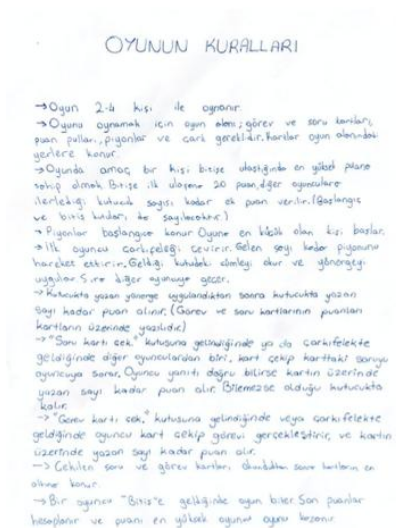 OYUNUN KURALLARI
→ Oyun 2-4 kişi ile oynanır.
→ Oyunu oynamak için oyun alanı; görev ve soru kartları,
puan pulları, piyonlar ve çark gereklidir. Kartlar oyun alanındaki
yerlere konur.
→ Oyunda amaç bir kişi bitişe ulaştığında en yüksek puana
sahip olmak. Bitişe ilk ulaşana 20 puan, diğer oyunculara
ilerlediği kutucuk sayısı kadar ek puan verilir. (Başlangıç
ve bitiş kutuları da sayılacaktır.)
→ Piyonlar başlangıca konur. Oyuna en küçük olan kişi başlar.
→ İlk oyuncu çarkıfeleği çevirir. Gelen sayı kadar piyonunu
hareket ettirir. Geldiği kutudaki cümleyi okur ve yönergeyi
uygular. Sıra diğer oyuncuya geçer.
→ Kutucukta yazan yönerge uygulandıktan sonra kutucukta yazan
sayı kadar puan alınır. (Görev ve soru kartlarının puanları
kartların üzerinde yazılıdır.)
→ "Soru kartı çek." kutusuna gelindiğinde ya da çarkıfelekte
geldiğinde diğer oyunculardan biri, kart çekip karttaki soruyu
oyuncuya sorar. Oyuncu yanıtı doğru bilirse kartın üzerinde
yazan sayı kadar puan alır. Bilemezse olduğu kutucukta
kalır.
→ "Görev kartı çek." kutusuna gelindiğinde veya çarkıfelekte
geldiğinde oyuncu kart çekip görevi gerçekleştirir, ve kartın
üzerinde yazan sayı kadar puan alır.
→ Çekilen soru ve görev kartları sonra kartların en
altına konur.
→ Bir oyuncu "Bitiş"e geldiğinde oyun biter. Son puanlar
hesaplanır ve puanı en yüksek oyuncu oyunu kazanır.